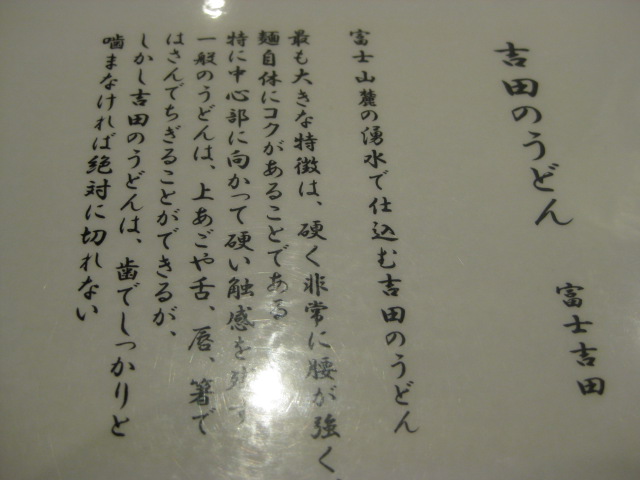 吉田のうどん
富士吉田
富士山麓の湧水で仕込む吉田のうどん
最も大きな特徴は、硬く非常に腰が強く、
麺自体にコクがあることである
特に中心部に向かって硬い触感を残す
一般のうどんは、上あごや舌、唇、箸で
はさんでちぎることができるが、
しかし吉田のうどんは、歯でしっかりと
噛まなければ絶対に切れない